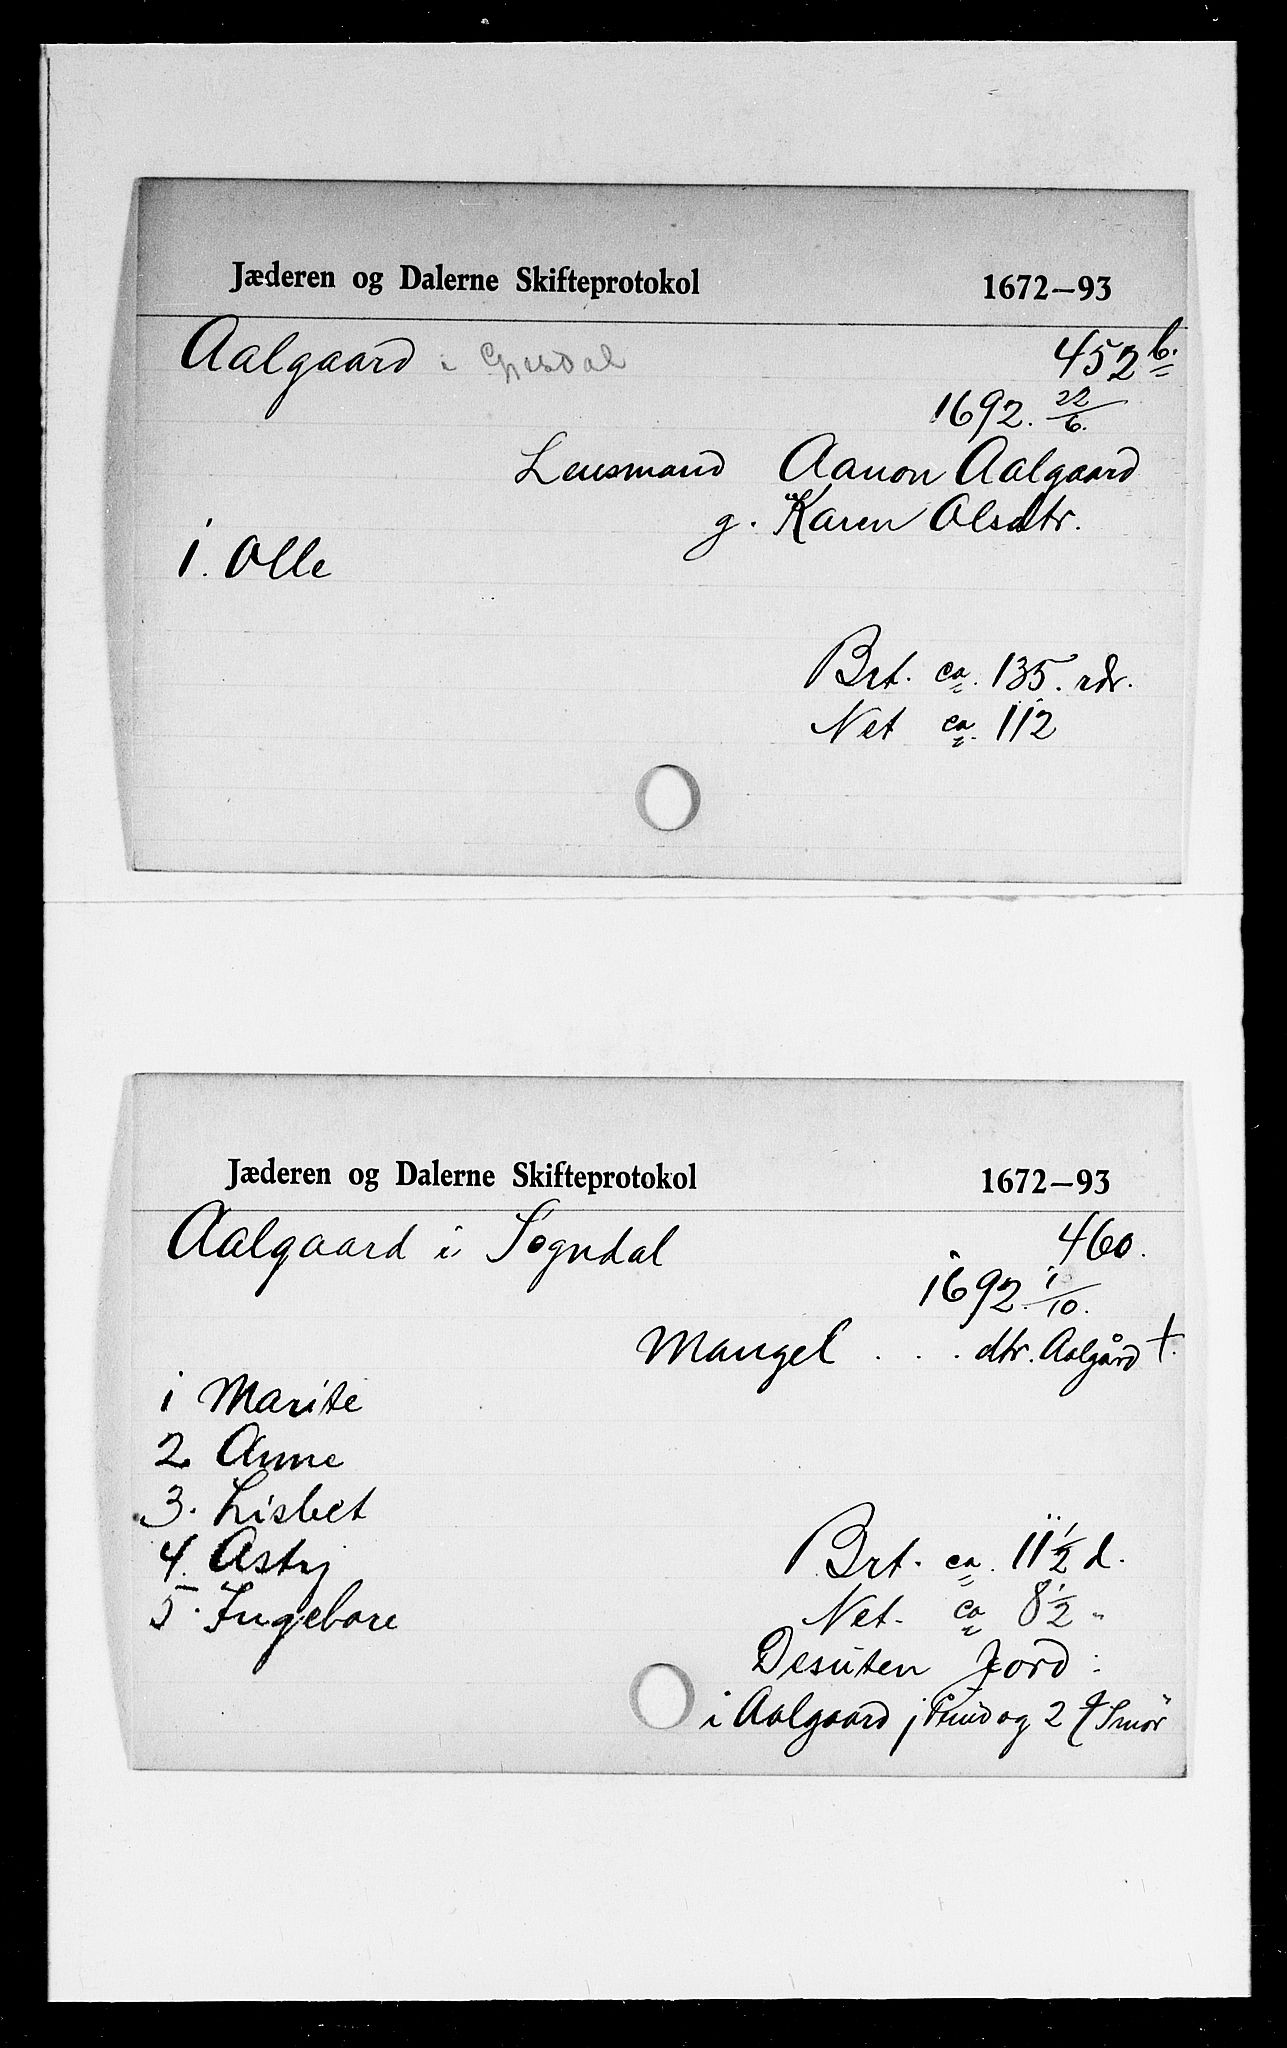 Jæderen og Dalerne Skifteprotokol 1672–93
Aalgaard i Gjesdal 452 b.
1692. 22/6.
Lensmand Aanon Aalgaard
g. Karen Olsdtr.
1. Olle
Brt. ca. 135. rdr.
Net ca. 112
Jæderen og Dalerne Skifteprotokol 1672–93
Aalgaard i Sogndal 460.
1692. 1/10.
Mangel . . . dtr. Aalgård †.
1 Marite
2 Anne
3. Lisbet
4. Astrj
5. Ingebore
Brt. ca. 11 1/2 d.
Net. ca 8 1/2 "
Desuten Jord:
i Aalgaard j Pund og 2 Smör